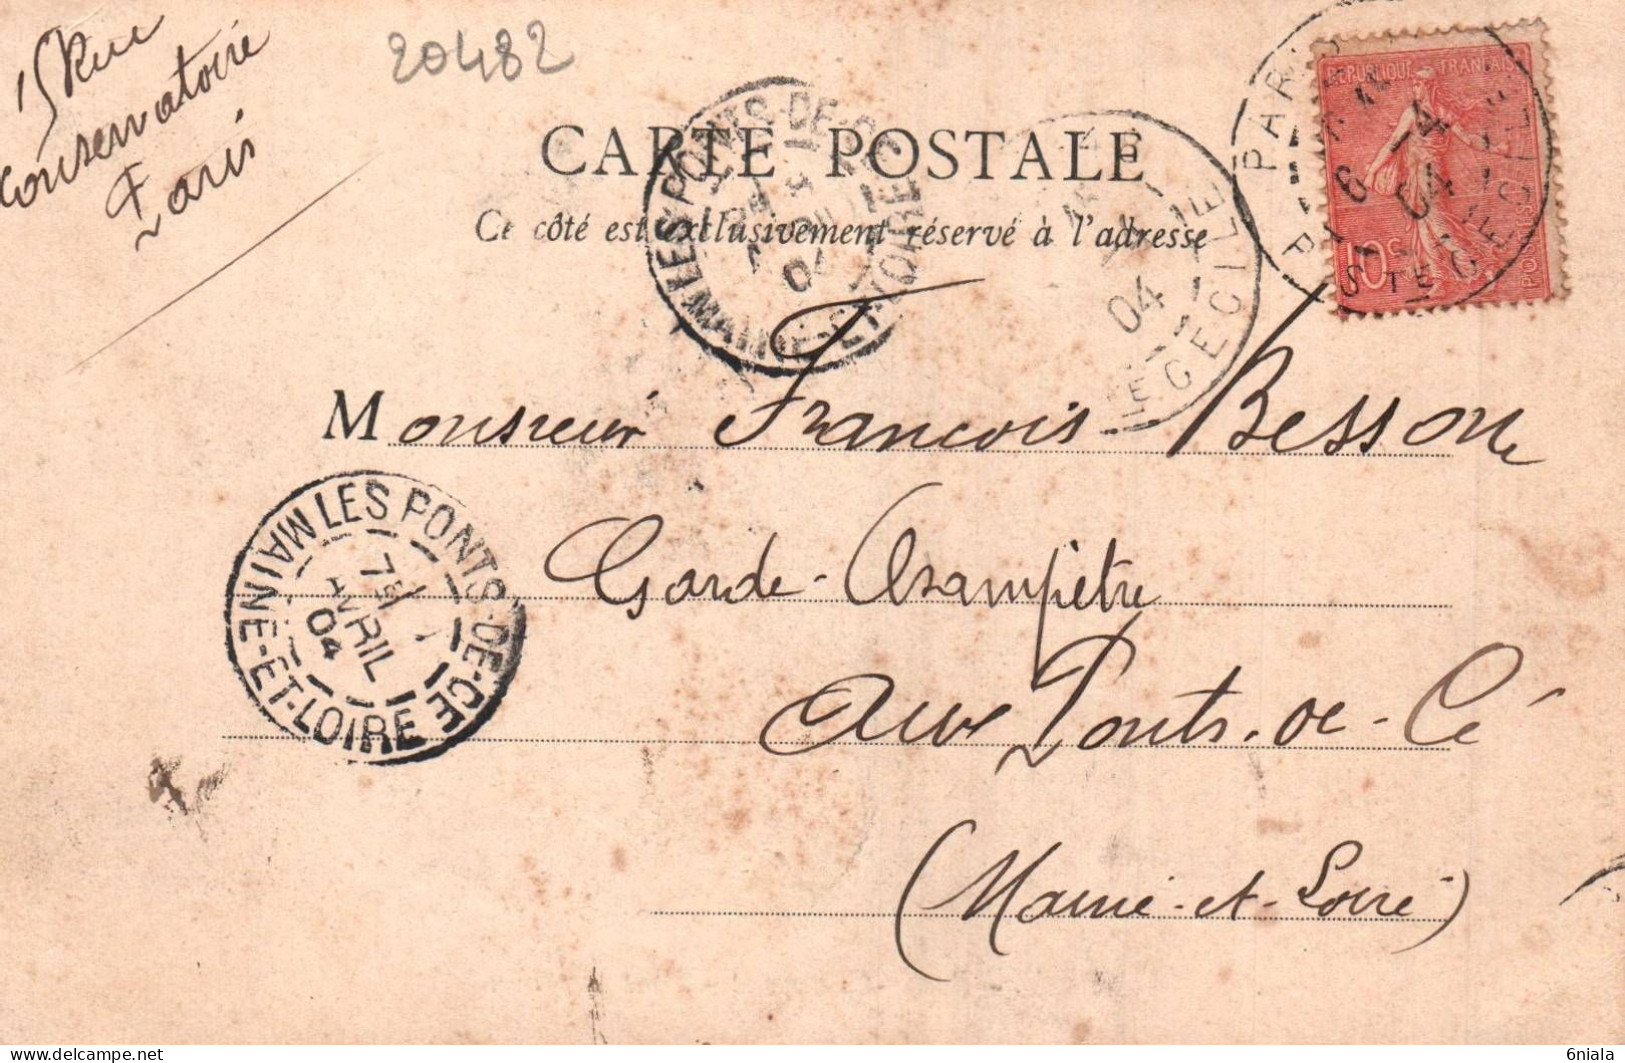 15 Rue
Conservatoire
Paris
20482
CARTE POSTALE
Ce côté est exclusivement réservé à l'adresse
REPUBLIQUE FRANÇAISE
10c
POSTES
PARIS
STE CECILE
04
LES PONTS-DE-CÉ
MAINE-ET-LOIRE
04
STE CECILE
04
Monsieur François Besson
LES PONTS-DE-CE
MAINE-ET-LOIRE
AVRIL
04
Garde-Champêtre
Aux Ponts-de-Cé
(Maine-et-Loire)
6niala